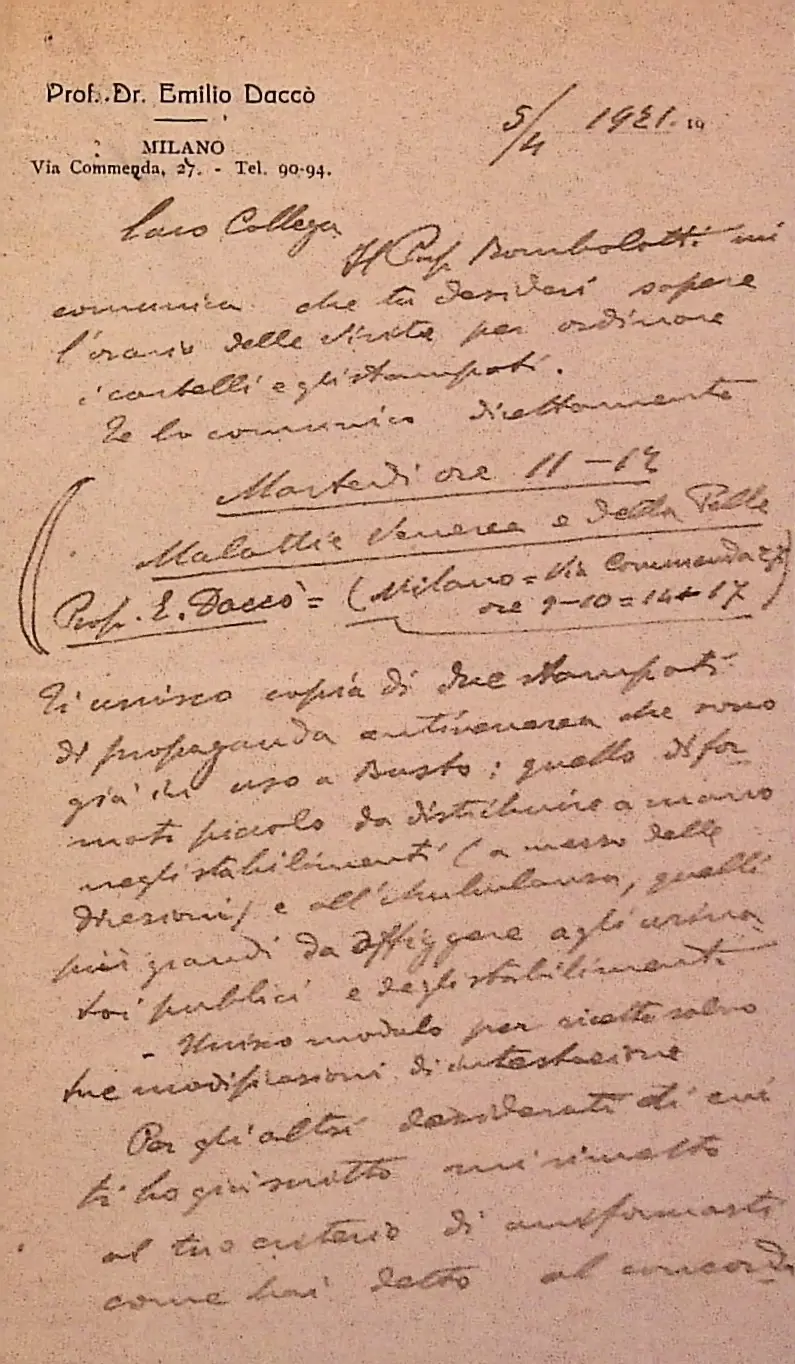 Prof. Dr. Emilio Daccò
MILANO
Via Commenda, 27. - Tel. 90-94.
5/4 1921. 19
Caro Collega
Il Prof. Bombolotti mi
comunica che tu desideri sapere
l'orario delle visite per ordinare
i cartelli e gli stampati.
Te lo comunico direttamente
Martedì ore 11-12
Malattie Veneree e della Pelle
Prof. E. Daccò = (Milano = Via Commenda 27
ore 9-10 = 14 17)
Ti unisco copia di due stampati
di propaganda antivenerea che sono
già in uso a Busto: quello di for-
mato piccolo da distribuire a mano
negli stabilimenti (a mezzo delle
direzioni) e all'Ambulanza, quelli
più grandi da affiggere agli orina-
toi pubblici e degli stabilimenti
- Unisco modulo per ricette salvo
tue modificazioni di intestazione
Per gli altri desiderati di cui
ti ho già scritto mi rimetto
al tuo criterio di
come hai detto al